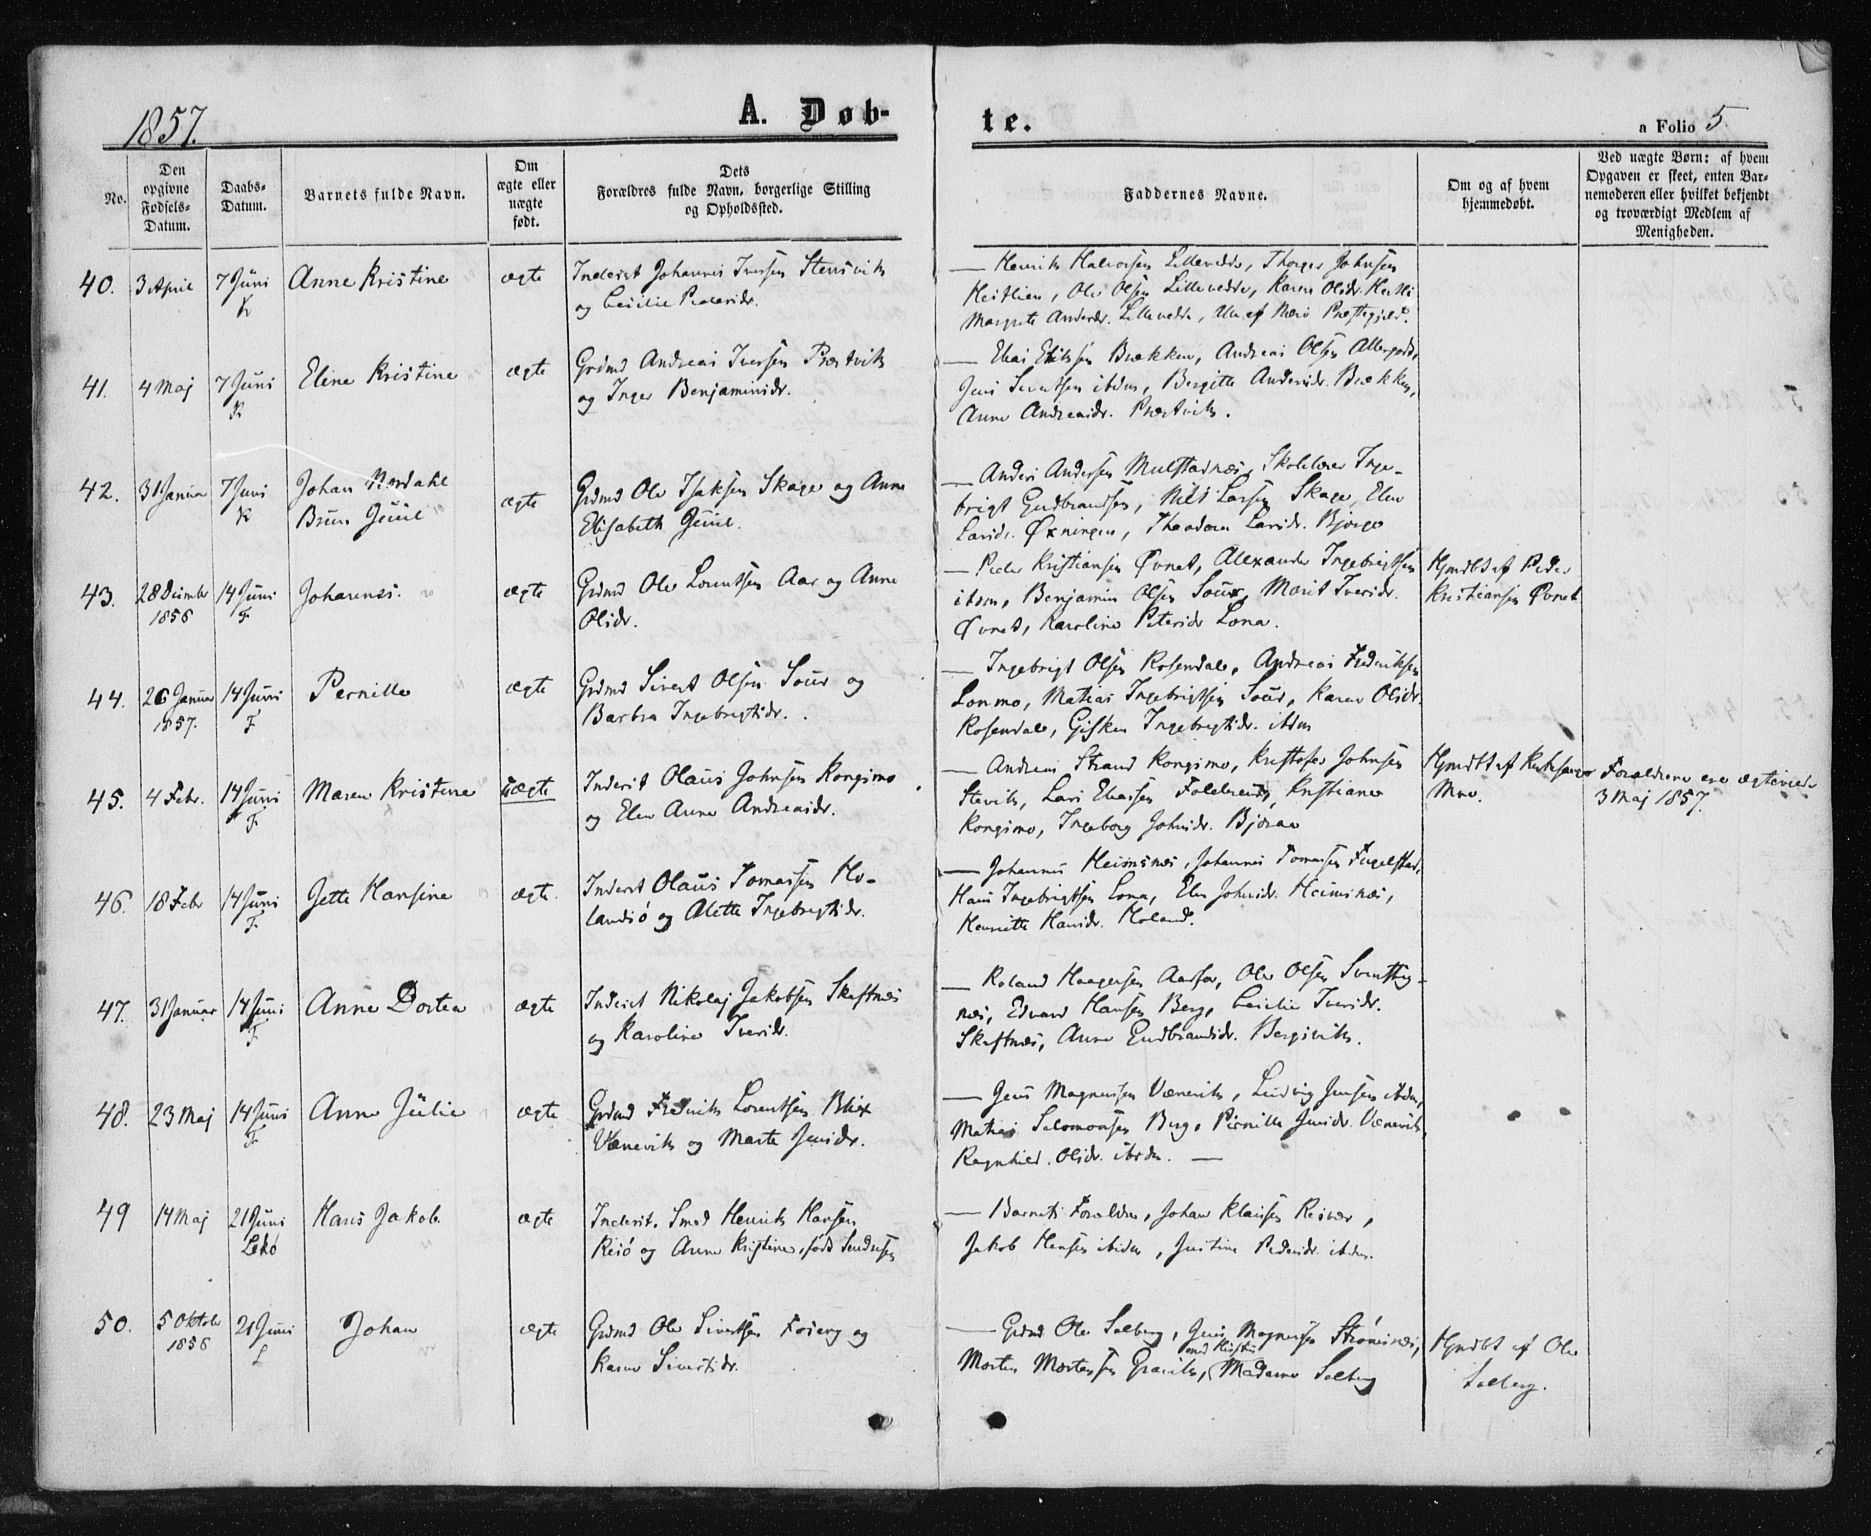 1857.
A. Døb-
te.
a Folio 5
No.
Den opgivne Fødsels-Datum.
Daabs-Datum.
Barnets fulde Navn.
Om ægte eller uægte født.
Dets Forældres fulde Navn, borgerlige Stilling og Opholdssted.
Faddernes Navne.
Om og af hvem hjemmedøbt.
Ved uægte Børn: af hvem Opgaven er skeet, enten Barnemoderen eller hvilket bekjendt og troværdigt Medlem af Menigheden.
40. 3 April 7 Juni K Anne Kristine ægte
Inderst Johannes Iversen Stensvik
og Cecilie Pedersdr.
— Henrik Halvorsen Lillevedde, Thorger Johnsen
Heitlien, Ole Olsen Lillevedde, Karen Olsdr.
Margrete Andersdr. Lillevedde, Alle af Nærø Præstegjeld.
41. 4 Maj 7 Juni K Eline Kristine ægte
Grdmd Andreas Iversen Præstvik
og Inger Benjaminsdr.
— Elias Eliksen Brækken, Andreas Olsen
Jens Sivertsen ibdm, Bergitte Andersdr. Brækken,
Anne Andreasdr. Præstvik.
42. 31 Januar 7 Juni K Johan Nordahl
Brun Juul ægte
Grdmd Ole Isaksen Skage og Anne
Elisabeth Juul.
— Anders Andersen Mulstadnæs, Skolelærer Inge-
brigt Gudbrandsen, Nils Larsen Skage, Elen
Larsdr. Øxningen, Theodora Larsdr. Bjørge
43. 28 December 1856 14 Juni F Johannes. ægte
Grdmd Ole Lorentsen Aar og Anne
Olsdr.
— Peder Kristiansen Øvnet, Alexander Ingebrigtsen
ibdm, Benjamin Olsen Sour, Marit Iversdr.
Øvnet, Karoline Petersdr Lona.
Hjmdbt af Peder
Kristiansen Øvnet
44. 26 Januar 1857. 14 Juni F Pernille ægte
Grdmd Sivert Olsen Sour og
Barbra Ingebrigtsdr.
— Ingebrigt Olsen Rosendale, Andreas Frederiksen
Lonmo, Matias Ingebrigtsen Sour, Karen Olsdr.
Rosendale, Gisken Ingebrigtsdr. ibdm
45. 4 Febr. 14 Juni F Maren Kristine uægte
Inderst Olaus Johnsen Kongsmo
og Elen Anne Andreasdr.
— Andreas Strand Kongsmo, Kristofer Johnsen
Stevik, Lars Eliassen Foldereid, Kristiane
Kongsmo, Ingeborg Johnsdr. Bjøraa
Hjmdbt af
Moe.
Forældrene ere ægteviede
3 Maj 1857.
46. 18 Febr 14 Juni F Jette Hansine ægte.
Inderst Olaus Tomassen Ho-
landsø og Alette Ingebrigtsdr.
— Johannes Heimsnæs, Johannes Tomassen Fugelstad,
Hans Ingebrigtsen Lona, Elen Johnsdr. Heimsnæs,
Henriette Hansdr. Holand.
47. 31 Januar 14 Juni F Anne Dortea ægte
Inderst Nikolaj Jakobsen Skaftnæs
og Karoline Iversdr.
— Roland Haagensen Aarfor, Ole Olsen
næs, Edvard Hansen Berg, Cecilie Iversdr.
Skaftnæs, Anne Gudbrandsdr. Bergsvik.
48. 23 Maj 14 Juni F Anne Julie ægte
Grdmd Fredrik Lorentsen Blix
Værevik og Marte Jensdr.
— Jens Magnussen Værevik, Ludvig Jensen ibdm,
Matias Salomonsen Berg, Pernille Jensdr. Værevik,
Ragnhild Olsdr. ibdm. —
49 14 Maj 21 Juni Lekø Hans Jakob. ægte
Inderst, Smed Henrik Hansen
Risø og Anne Kristine, født
— Barnets Forældre, Johan Klausen,
Jakob Hansen ibidm, Justine Pedersdr. ibdm.
50. 5 Oktober 1856 21 Juni L Johan ægte
Grdmd Ole Sivertsen og
Karen Sivertsdr.
— Grdmd Ole Solberg, Jens Magnussen Strømsnæs,
med Hustru
Morten Mortensen Gravik, Madame Solberg
Hjmdbt af Ole
Solberg.